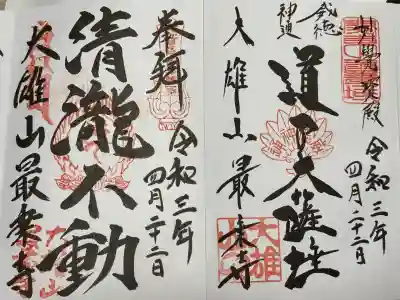 妙覺寶殿
令和三年
四月二十二日
道了大薩埵
威徳
神通
大雄山最乗寺
奉拜
令和三年
四月二十二日
清瀧不動
大雄山最乗寺